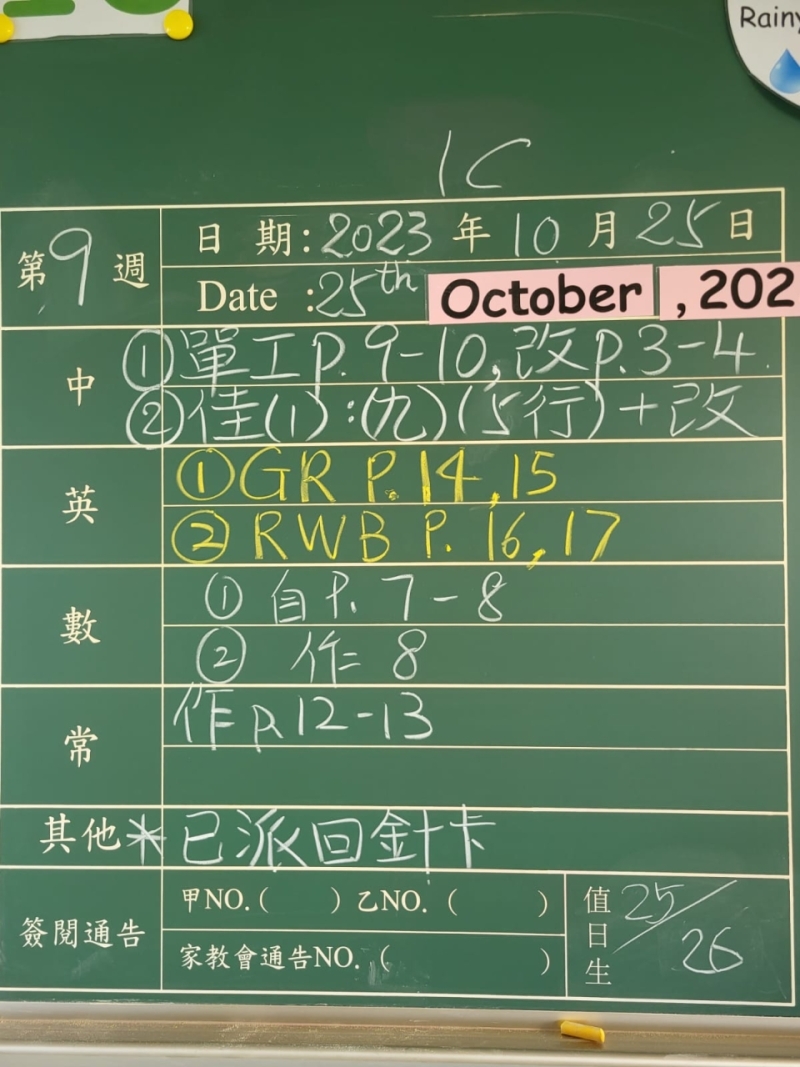 Rainy
1C
第9週
日 期:2023年10月25日
Date :25th October ,202
中
①單工p.9-10,改p.3-4
②佳(1):(九)(5行)+改
英
①GR P.14,15
②RWB P. 16,17
數
①自P.7-8
②作=8
常
作p.12-13
其他*已派回針卡
簽閱通告
甲NO.( )乙NO.( )
家教會通告NO.( )
值日生 25/26